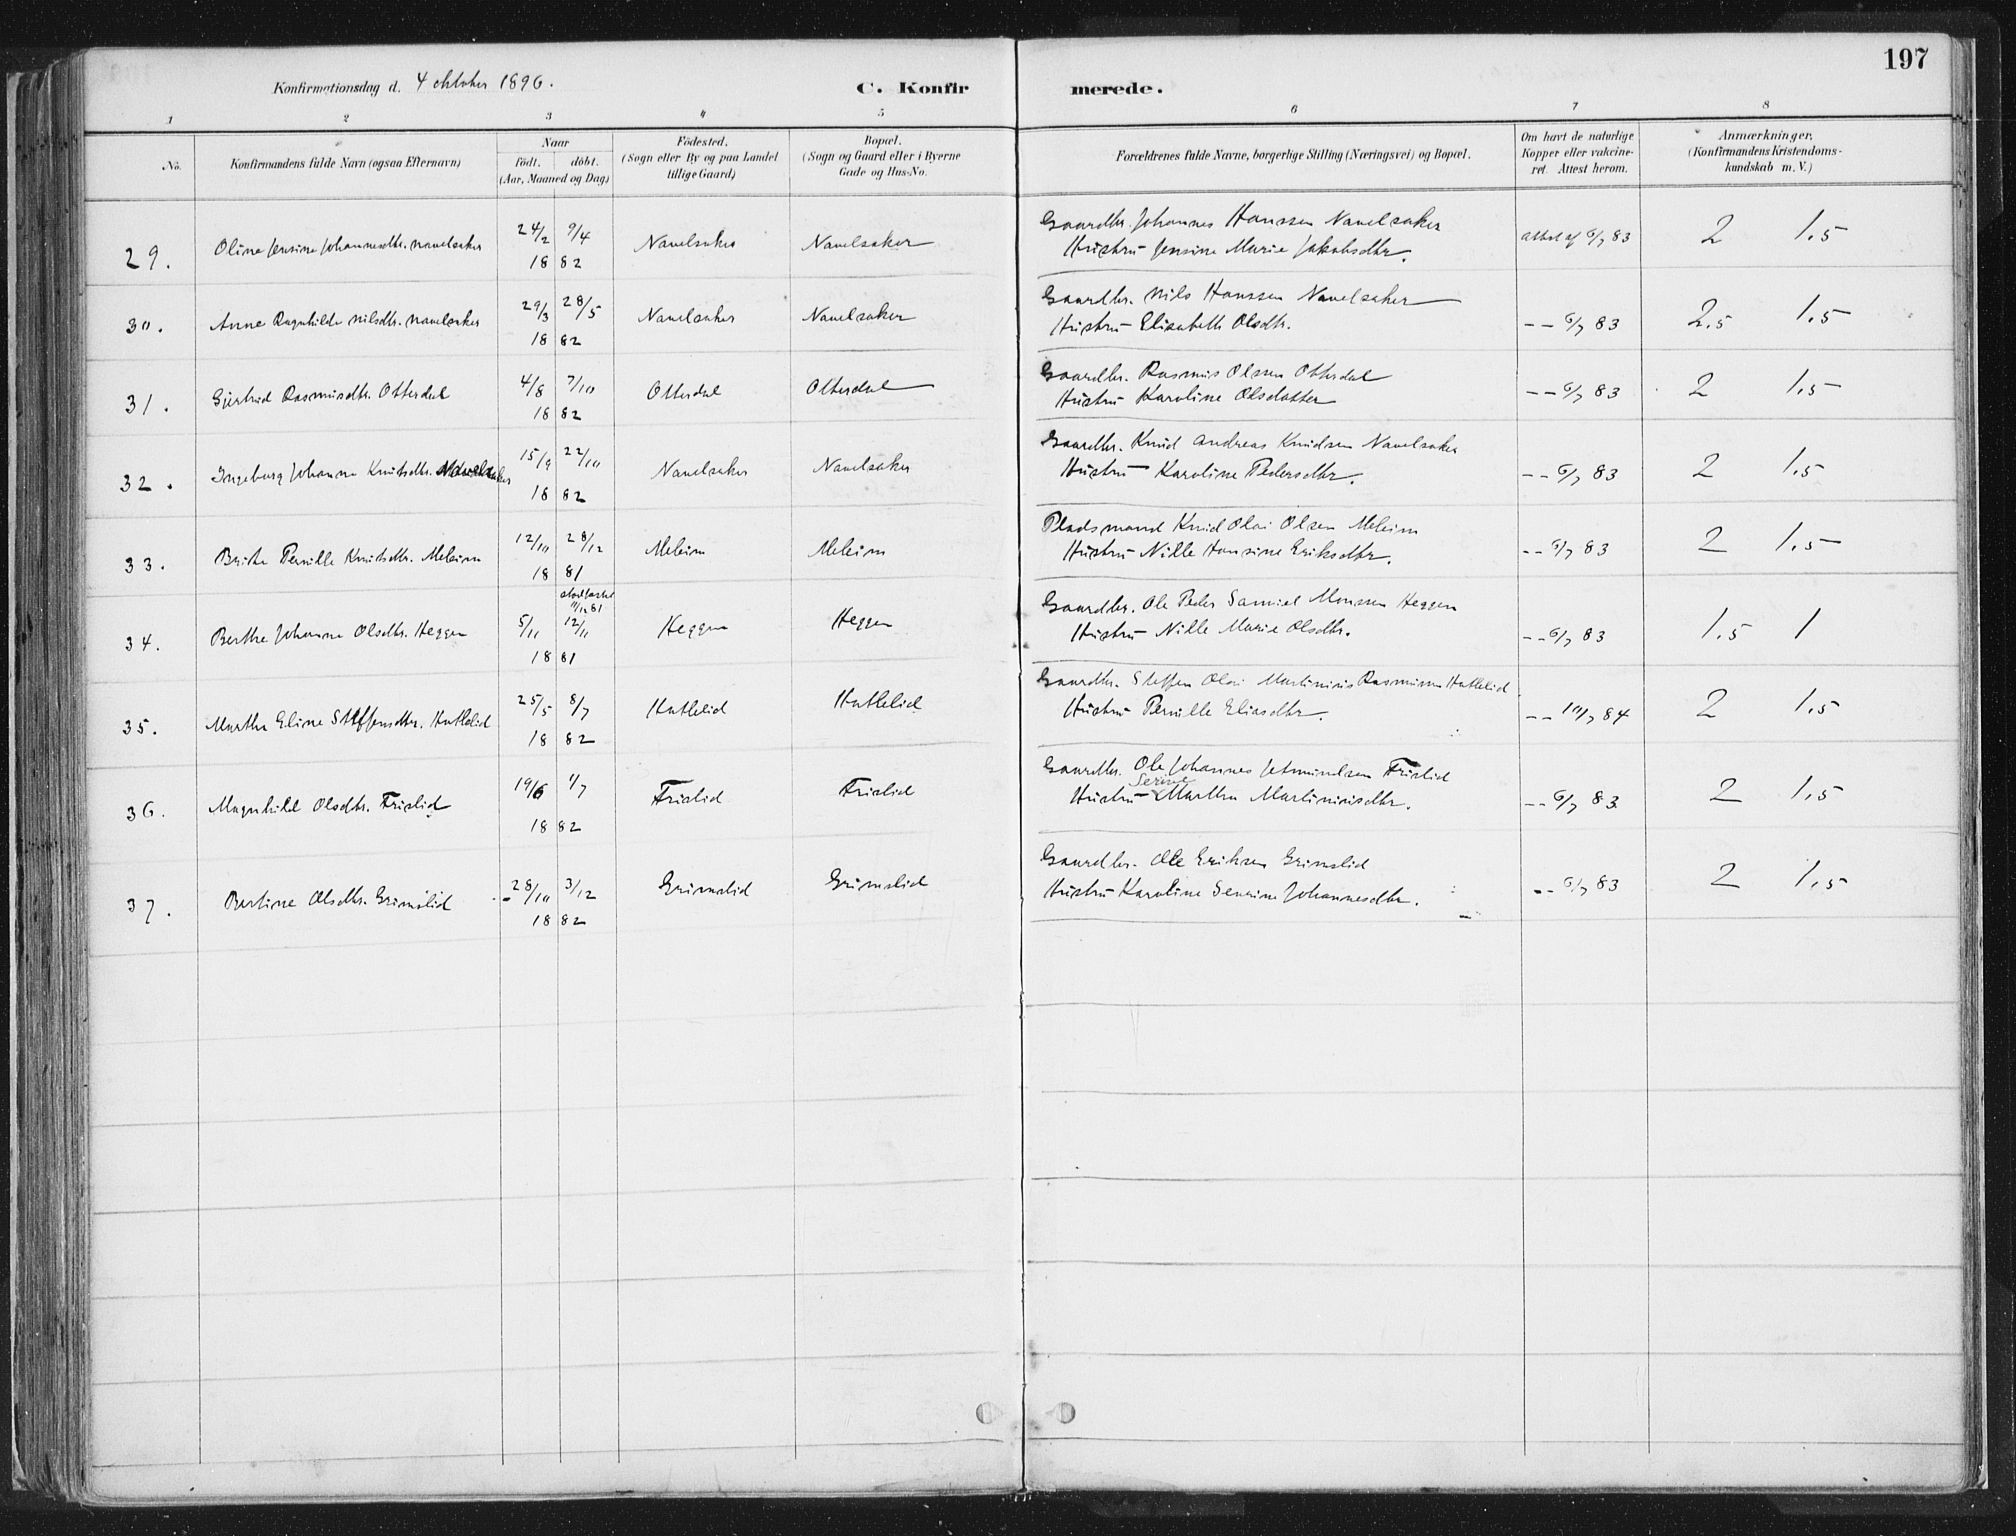 197
Konfirmationsdag d. 4 oktober 1896.
C. Konfirmerede.
1 2 3 4 5 6 7 8
No. Konfirmandens fulde Navn (ogsaa Efternavn) Naar födt. döbt. (Aar, Maaned og Dag) Födested. (Sogn eller By og paa Landet tillige Gaard) Bopæl. (Sogn og Gaard eller i Byerne Gade og Hus-No. Forældrenes fulde Navne, borgerlige Stilling (Næringsvei) og Bopæl. Om havt de naturlige Kopper eller vakcineret. Attest herom. Anmærkninger, (Konfirmandens Kristendomskundskab m. V.)
29. Oline Jensine Johannesdtr. Navelsaker 24/2 9/4 1882 Navelsaker Navelsaker Gaardbr. Johannes Hanssen Navelsaker
Hustru Jensine Marie Jakobsdtr. attest af 6/7 83 2 1,5
30. Anne Ragnhilde Nilsdtr. Navelsaker 29/3 28/5 1882 Navelsaker Navelsaker Gaardbr. Nils Hanssen Navelsaker
Hustru Elisabeth Olsdtr. -- 6/7 83 2,5 1,5
31. Gjertrud Rasmusdtr. Otterdal 4/8 7/10 1882 Otterdal Otterdal Gaardbr. Rasmus Olssen Otterdal
Hustru Karoline Olsdatter -- 6/7 83 2 1,5
32. Ingeborg Johanne Knutsdtr. Navelsaker 15/9 22/10 1882 Navelsaker Navelsaker Gaardbr. Knud Andreas Knudsen Navelsaker
Hustru Karoline Pedersdtr. -- 6/7 83 2 1,5
33. Brithe Pernille Knutsdtr. Meleim 12/10 28/12 1881 Meleim Meleim Pladsmand Knud Olai Olsen Meleim
Hustru Nille Hansine Eriksdtr. -- 6/7 83 2 1,5
34. Berthe Johanne Olsdtr. Heggen 5/11 12/11 1881 11/12 81 Heggen Heggen Gaardbr. Ole Peder Samuel Monssen Heggen
Hustru Nille Marie Olsdtr. -- 6/7 83 1,5 1
35. Marthe Eline Steffensdtr. Hatlelid 25/5 8/7 1882 Hatlelid Hatlelid Gaardbr. Steffen Olai Martinius Rasmussen Hatlelid
Hustru Pernille Eliasdtr. -- 10/7 84 2 1,5
36. Magnhild Olsdtr. Frislid 19/6 1/7 1882 Frislid Frislid Gaardbr. Ole Johannes Jetmundsen Frislid
Hustru Serine Martha Martiniusdtr. -- 6/7 83 2 1,5
37. Bertine Olsdtr. Grimslid 28/10 3/12 1882 Grimslid Grimslid Gaardbr. Ole Eriksen Grimslid
Hustru Karoline Severine Johannesdtr. -- 6/7 83 2 1,5